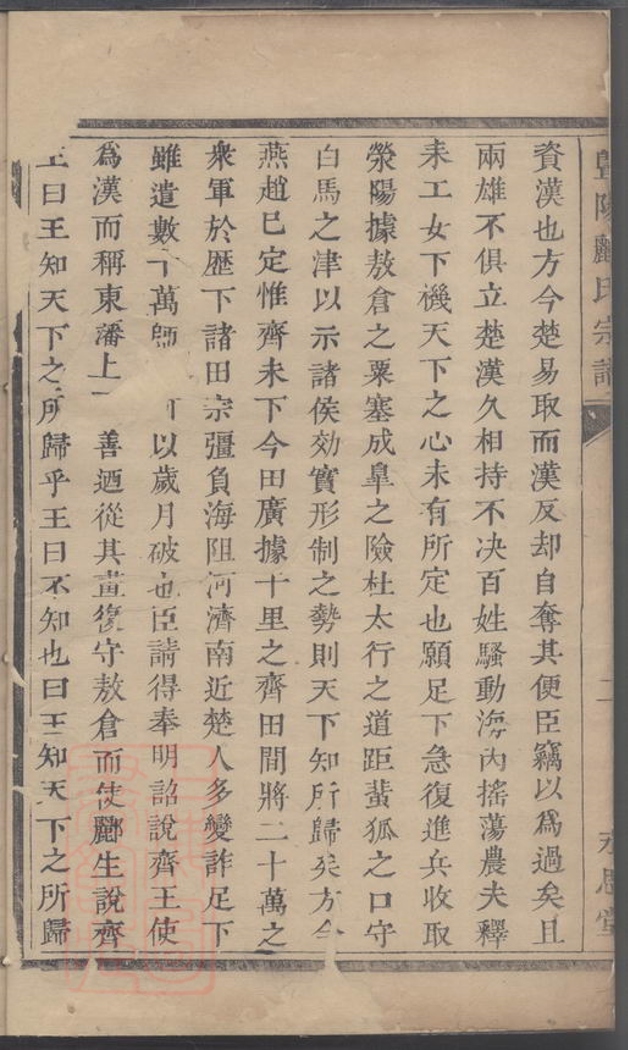 陽酈氏宗譜
二
思堂
資漢也方今楚易取而漢反却自奪其便臣竊以爲過矣且
兩雄不俱立楚漢久相持不决百姓騷動海内搖蕩農夫釋
耒工女下機天下之心未有所定也願足下急復進兵收取
滎陽據敖倉之粟塞成臯之險杜太行之道距蜚狐之口守
白馬之津以示諸侯効實形制之勢則天下知所歸矣方今
燕趙已定惟齊未下今田廣據千里之齊田間將二十萬之
衆軍於歷下諸田宗彊負海阻河濟南近楚人多變詐足下
雖遣數十萬師可以歲月破也臣請得奉明詔說齊王使
爲漢而稱東藩上 善迺從其畫復守敖倉而使酈生說齊
王曰王知天下之所歸乎王曰不知也曰王知天下之所歸